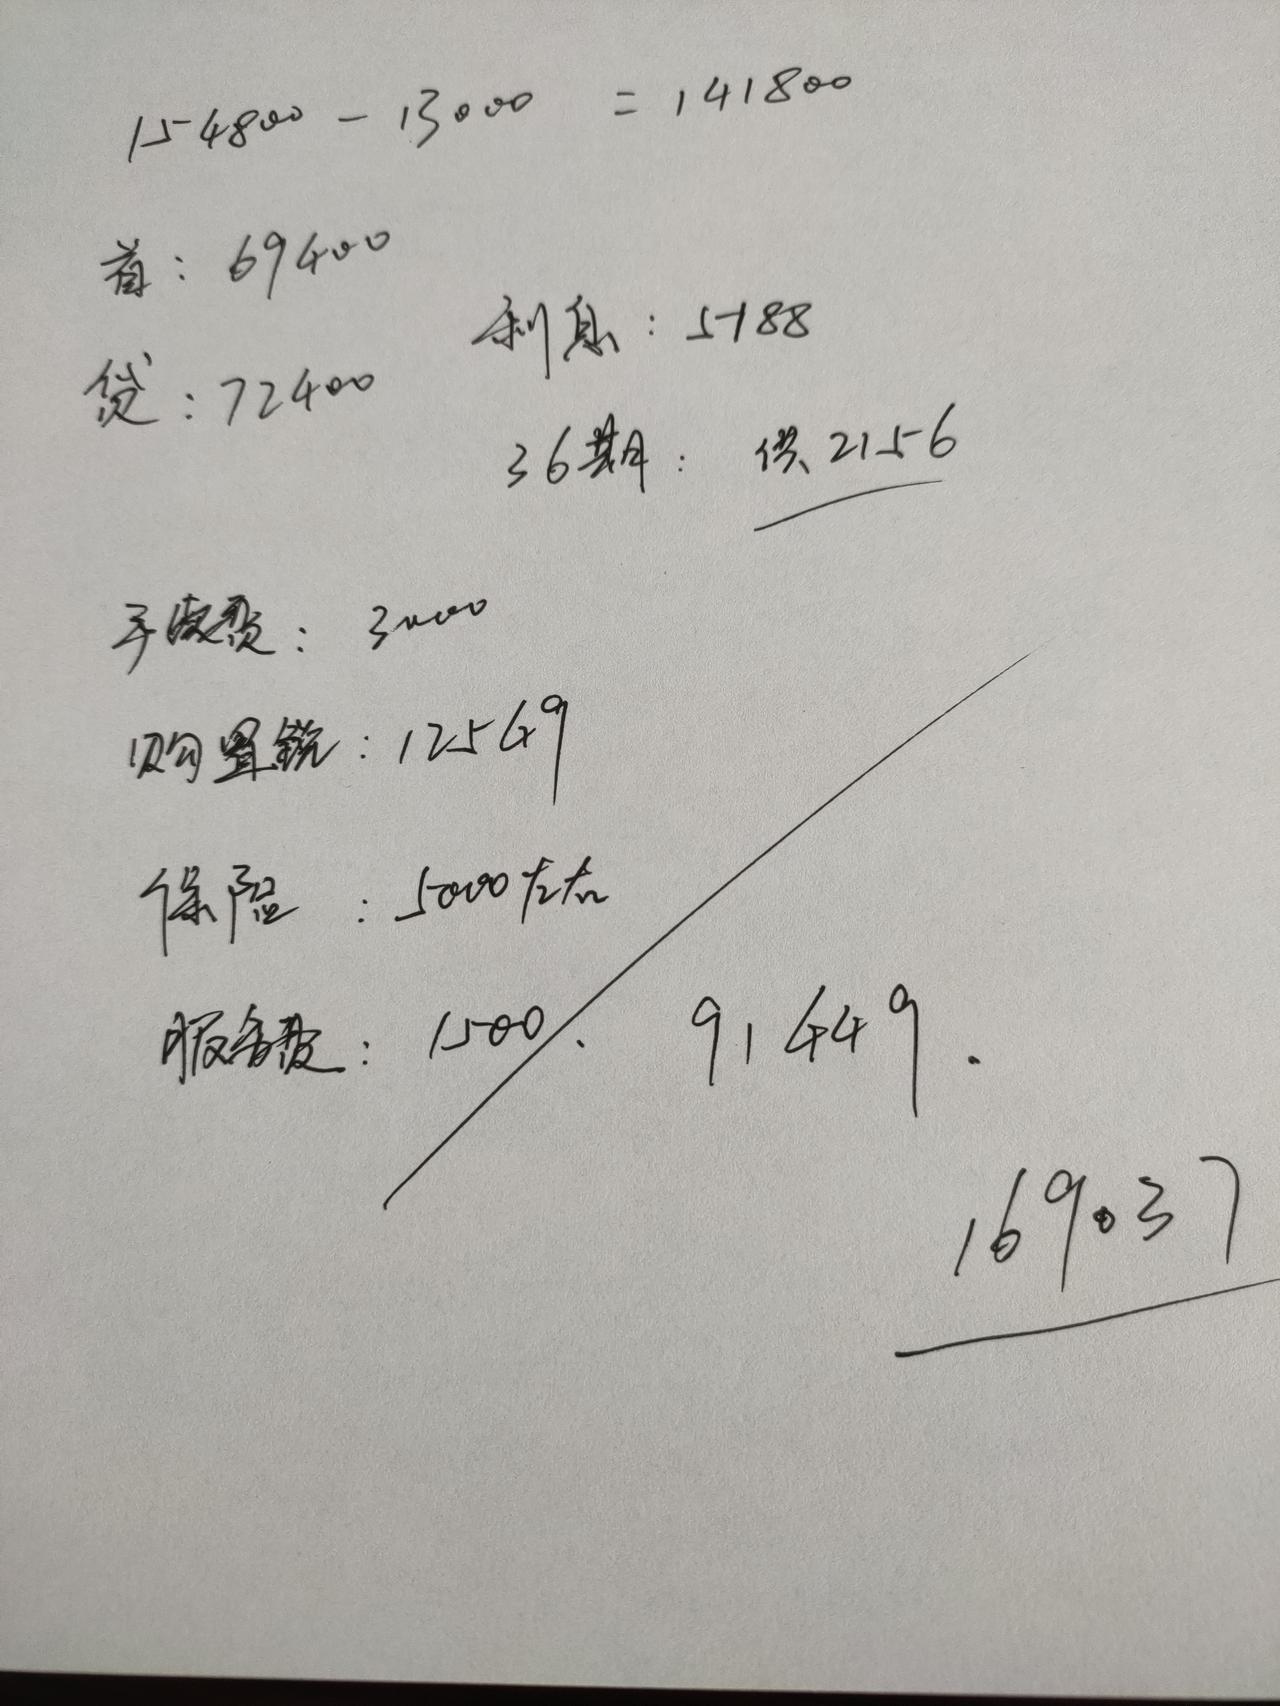 154800 - 13000 = 141800
首: 69400
利息: 5188
贷: 72400
36期: 供2156
手续费: 3000
购置税: 12549
保险: 5000左右
服务费: 1500.
91449.
169037